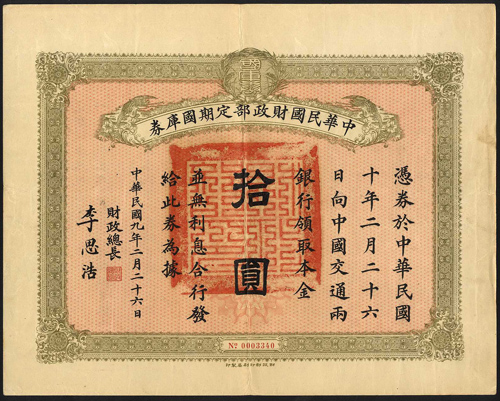 中華民國財政部定期國庫券
憑券於中華民國
十年二月二十六
日向中國交通兩
銀行領取本金
拾圓
並無利息合行發
給此券為據
中華民國九年二月二十六日
財政總長
李思浩
No 0003340
財政部印刷局製印